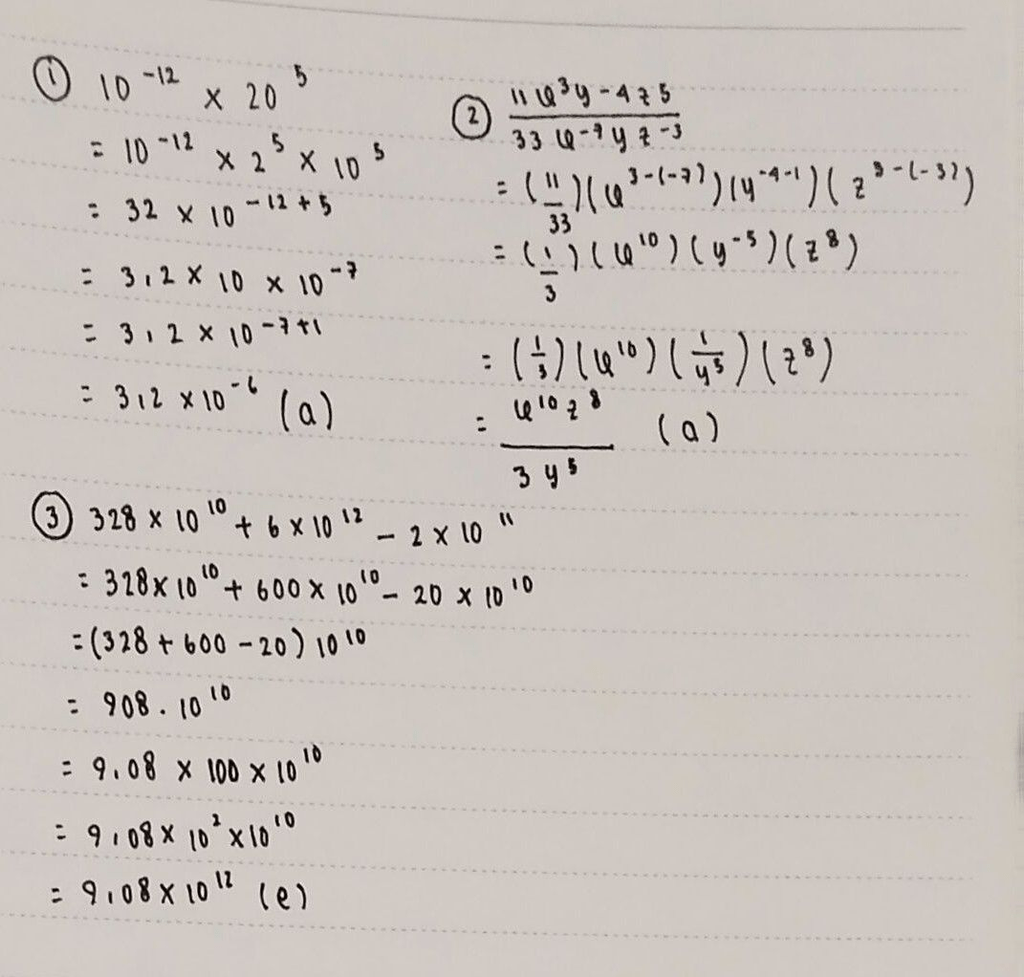 ① 10⁻¹² × 20⁵
= 10⁻¹² × 2⁵ × 10⁵
= 32 × 10⁻¹²⁺⁵
= 3,2 × 10 × 10⁻⁷
= 3,2 × 10⁻⁷⁺¹
= 3,2 × 10⁻⁶ (a)
② 11 φ³y - 4z5 / 33 φ⁻⁷ y z⁻³
= (11/33)(φ³⁻⁽⁻⁷⁾)(y⁻⁴⁻¹)(z⁵⁻⁽⁻³⁾)
= (1/3)(φ¹⁰)(y⁻⁵)(z⁸)
= (1/3)(φ¹⁰)(1/y⁵)(z⁸)
= φ¹⁰z⁸ / 3y⁵ (a)
③ 328 × 10¹⁰ + 6 × 10¹² - 2 × 10¹¹
= 328 × 10¹⁰ + 600 × 10¹⁰ - 20 × 10¹⁰
= (328 + 600 - 20) 10¹⁰
= 908 . 10¹⁰
= 9,08 × 100 × 10¹⁰
= 9,08 × 10² × 10¹⁰
= 9,08 × 10¹² (e)